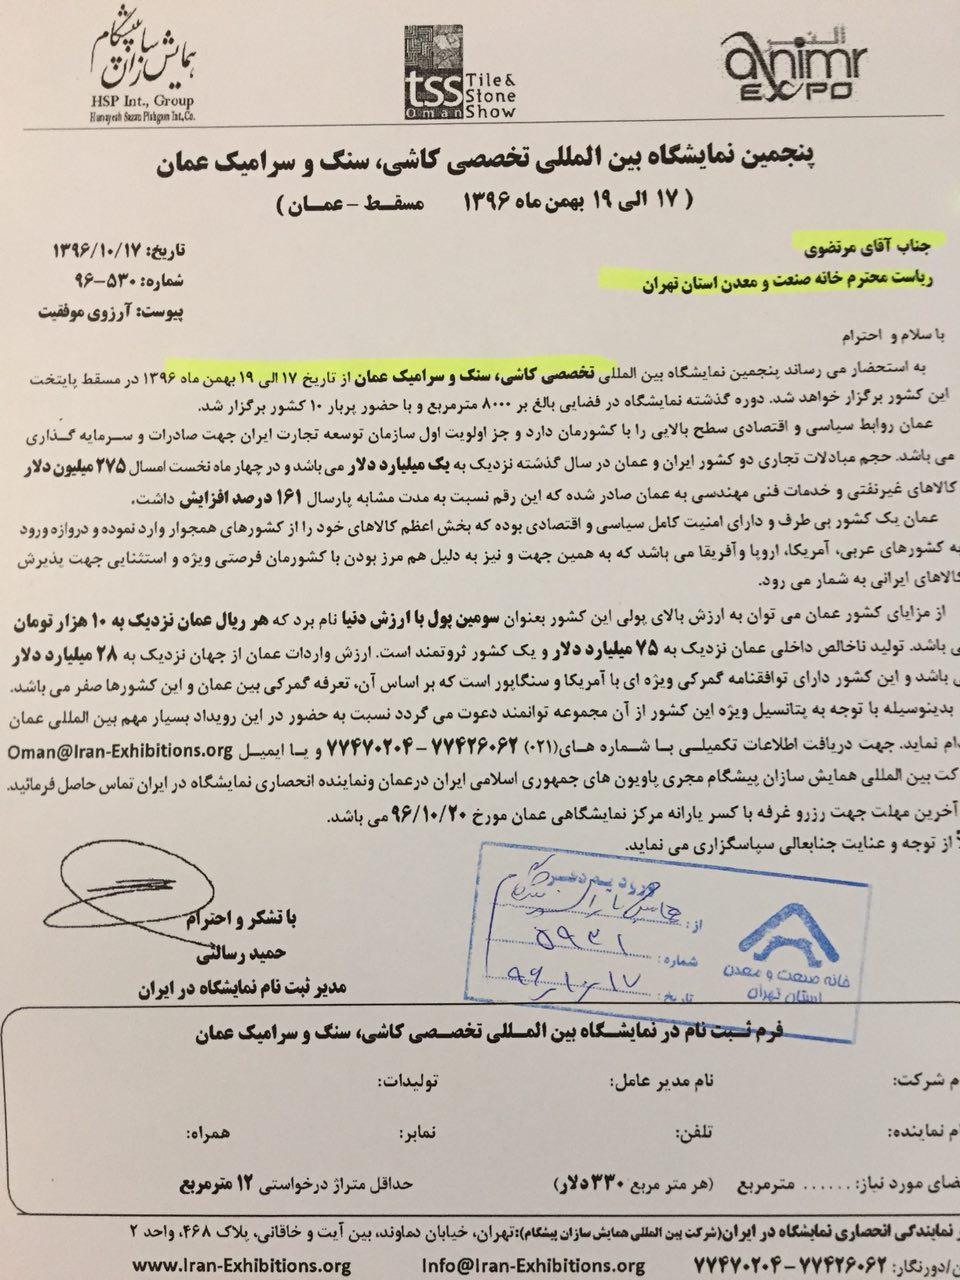 همایش سازان پیشگام
HSP Int., Group
Hamayesh Sazan Pishgam Int,Co.
tss Tile& Stone Show
Oman
النمر
animr
EXPO
پنجمین نمایشگاه بین المللی تخصصی کاشی، سنگ و سرامیک عمان
( ۱۷ الی ۱۹ بهمن ماه ۱۳۹۶ مسقط – عمـان )
جناب آقای مرتضوی
ریاست محترم خانه صنعت و معدن استان تهران
تاریخ: ۱۳۹۶/۱۰/۱۷
شماره: ۵۳۰-۹۶
پیوست: آرزوی موفقیت
با سلام و احترام
به استحضار می رساند پنجمین نمایشگاه بین المللی تخصصی کاشی، سنگ و سرامیک عمان از تاریخ ۱۷ الی ۱۹ بهمن ماه ۱۳۹۶ در مسقط پایتخت
این کشور برگزار خواهد شد. دوره گذشته نمایشگاه در فضایی بالغ بر ۸۰۰۰ مترمربع و با حضور پربار ۱۰ کشور برگزار شد.
عمان روابط سیاسی و اقتصادی سطح بالایی را با کشورمان دارد و جز اولویت اول سازمان توسعه تجارت ایران جهت صادرات و سـرمایه گـذاری
می باشد. حجم مبادلات تجاری دو کشور ایران و عمان در سال گذشته نزدیک به یک میلیارد دلار می باشد و در چهار ماه نخست امسال ۲۷۵ میلیون دلار
کالاهای غیرنفتی و خدمات فنی مهندسی به عمان صادر شده که این رقم نسبت به مدت مشابه پارسال ۱۶۱ درصد افزایش داشت.
عمان یک کشور بی طرف و دارای امنیت کامل سیاسی و اقتصادی بوده که بخش اعظم کالاهای خود را از کشورهای همجوار وارد نموده و دروازه ورود
به کشورهای عربی، آمریکا، اروپا وآفریقا می باشد که به همین جهت و نیز به دلیل هم مرز بودن با کشورمان فرصتی ویژه و استثنایی جهت پذیرش
کالاهای ایرانی به شمار می رود.
از مزایای کشور عمان می توان به ارزش بالای پولی این کشور بعنوان سومین پول با ارزش دنیا نام برد که هر ریال عمان نزدیک به ۱۰ هزار تومان
می باشد. تولید ناخالص داخلی عمان نزدیک به ۷۵ میلیارد دلار و یک کشور ثروتمند است. ارزش واردات عمان از جهان نزدیک به ۲۸ میلیارد دلار
می باشد و این کشور دارای توافقنامه گمرکی ویژه ای با آمریکا و سنگاپور است که بر اساس آن، تعرفه گمرکی بین عمان و این کشورها صفر می باشد.
بدینوسیله با توجه به پتانسیل ویژه این کشور از آن مجموعه توانمند دعوت می گردد نسبت به حضور در این رویداد بسیار مهم بین المللی عمان
نماید. جهت دریافت اطلاعات تکمیلـی بـا شماره هـای(۰۲۱) ۷۷۴۲۶۰۶۲ – ۷۷۴۷۰۲۰۴ و یـا ایمیـل Oman@Iran-Exhibitions.org
بین المللی همایش سازان پیشگام مجری پاویون های جمهوری اسلامی ایران درعمان ونماینده انحصاری نمایشگاه در ایران تماس حاصل فرمائید.
آخرین مهلت جهت رزرو غرفه با کسر یارانه مرکز نمایشگاهی عمان مورخ ۹۶/۱۰/۲۰ می باشد.
از توجه و عنایت جنابعالی سپاسگزاری می نماید.
با تشکر و احترام
حمید رسالتی
مدیر ثبت نام نمایشگاه در ایران
ورود به دفتر
از:
شماره: ۵۹۳۱
تاریخ: ۹۶/۱۰/۱۷
خانه صنعت و معدن
استان تهران
فرم ثـبت نام در نمایشـگاه بین المـللی تخصـصی کاشی، سنگ و سرامیک عمان
شرکت: نام مدیر عامل: تولیدات:
نماینده: تلفن: نمابر: همراه:
مورد نیاز: ...... مترمربع (هر متر مربع ۳۳۰ دلار) حداقل متراژ درخواستی ۱۲ مترمربع
نمایندگی انحصاری نمایشگاه در ایران(شرکت بین المللی همایش سازان پیشگام):تهران، خیابان دماوند، بین آیت و خاقانی، پلاک ۴۶۸، واحد ۲
/دورنگار: ۷۷۴۲۶۰۶۲ – ۷۷۴۷۰۲۰۴ Info@Iran-Exhibitions.org www.Iran-Exhibitions.org